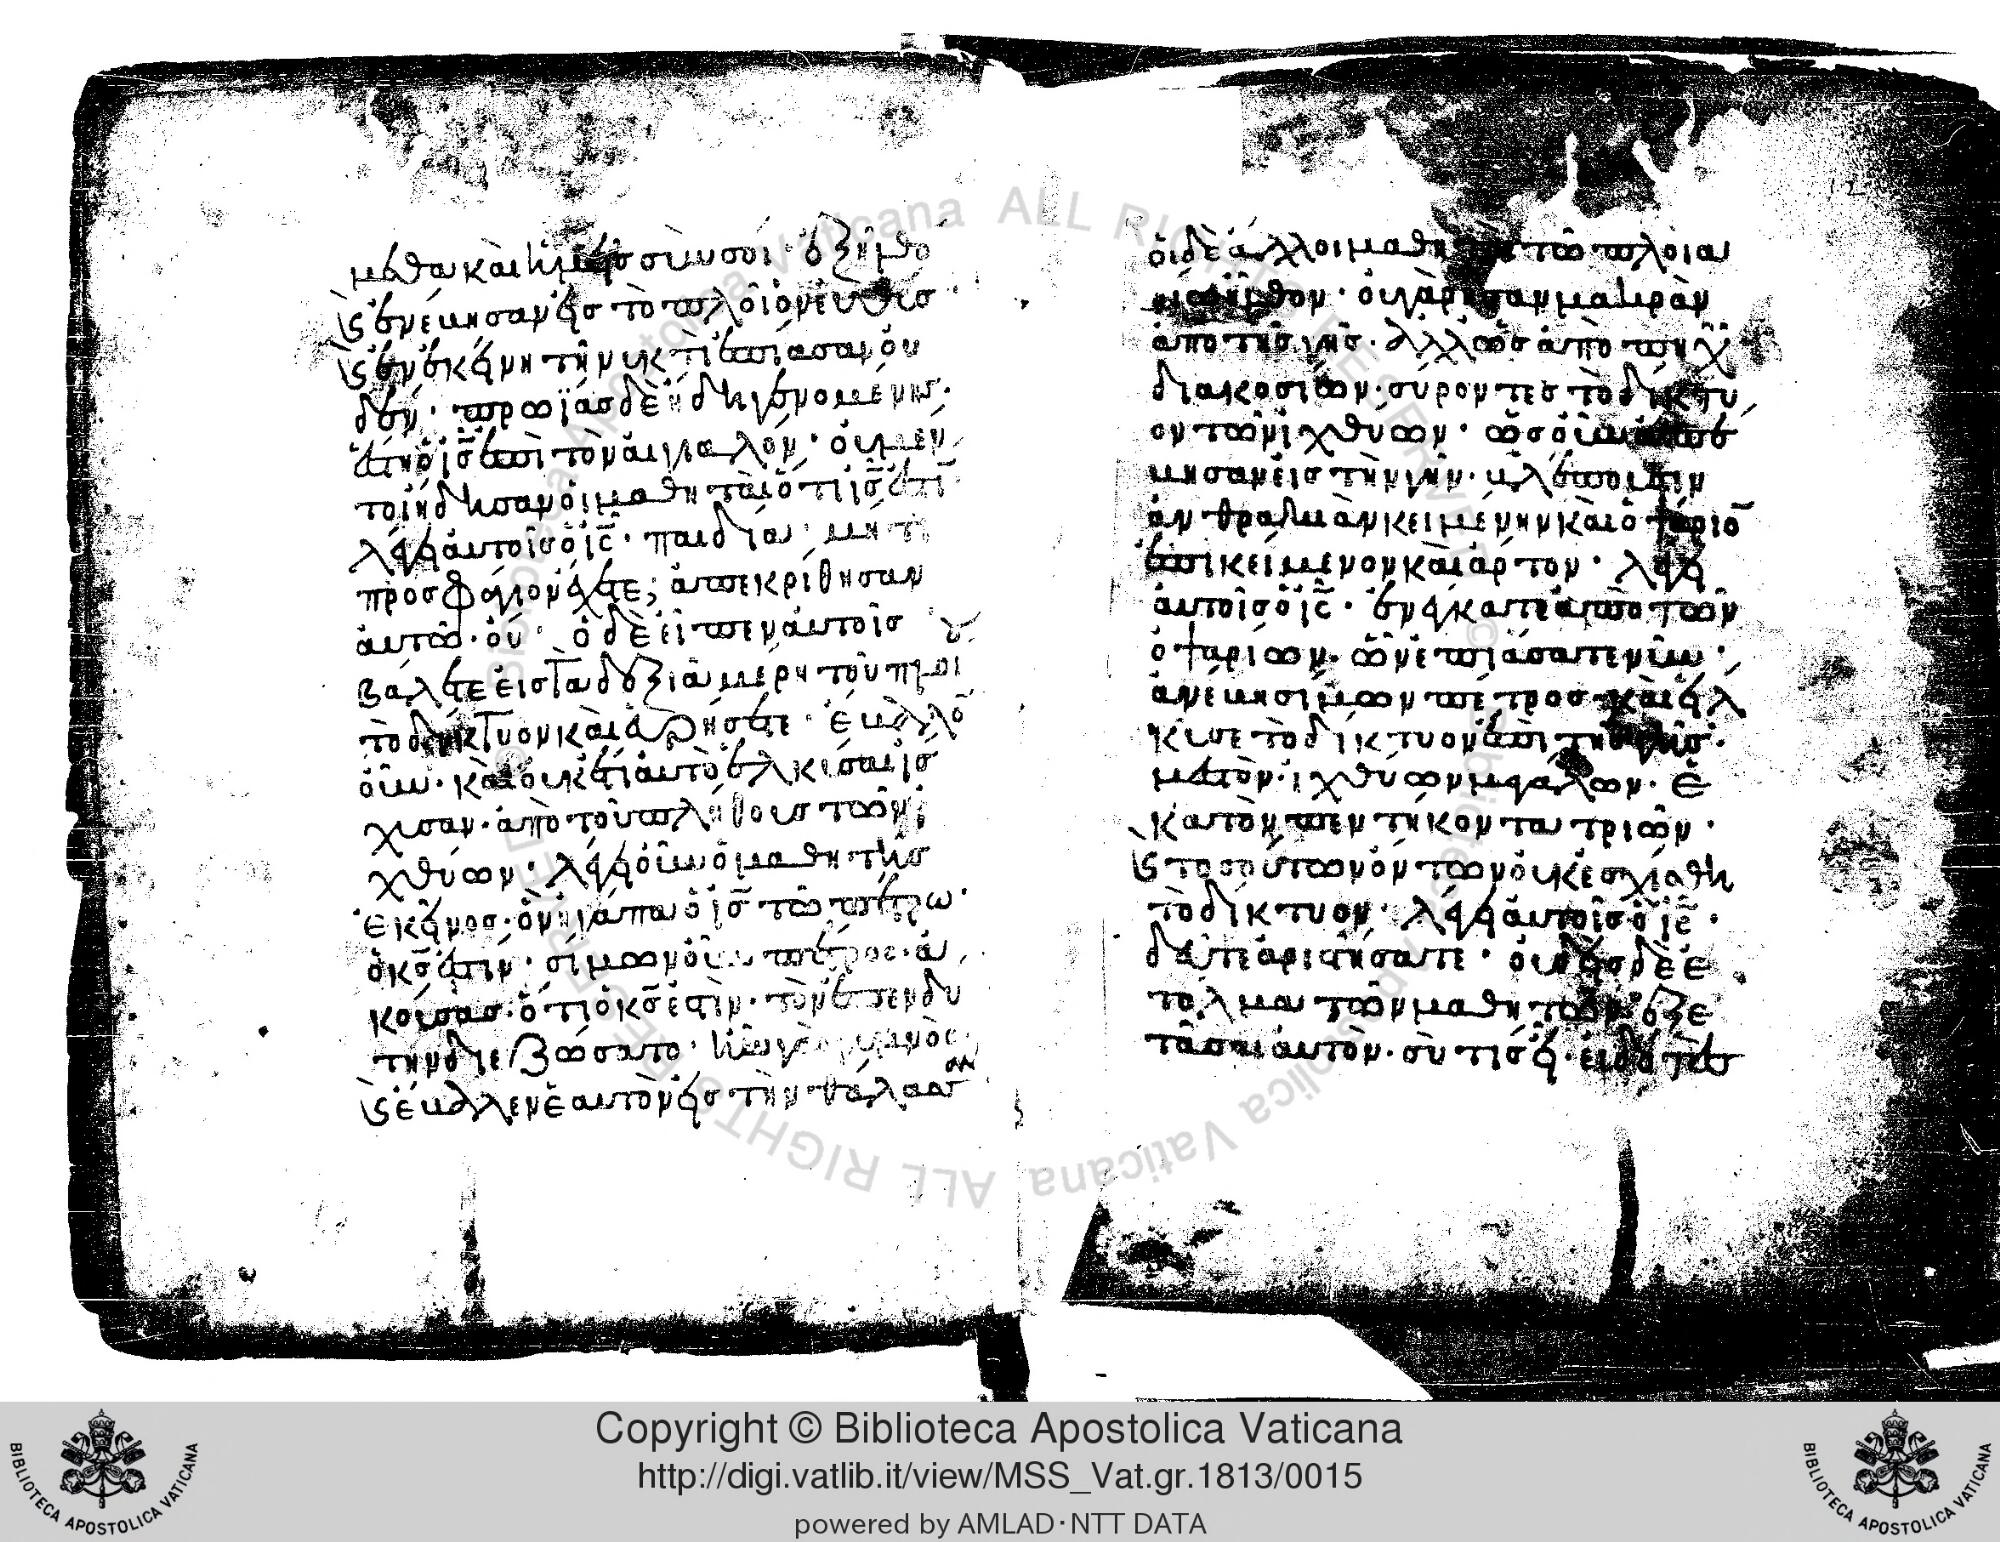 μεθα καὶ ἡμεῖς σὺν σοί· ἐξῆλθο
καὶ ἐνέβησαν εἰς τὸ πλοῖον εὐθὺς
καὶ ἐν ἐκείνη τῆ νυκτὶ ἐπίασαν οὐ
δέν· πρωΐας δὲ ἤδη γενομένης·
ἔστη ὁ ἰς ἐπὶ τὸν αἰγιαλόν· οὐ μέν
τοι ἤδησαν οἱ μαθηταὶ ὅτι ἰς ἐστί·
λέγει αὐτοῖς ὁ ἰς· παιδία· μή τι
προσφάγιον ἔχετε; ἀπεκρίθησαν
αὐτῶ· οὔ· ὁ δὲ εἶπεν αὐτοῖς
βάλετε εἰς τὰ δεξιὰ μέρη τοῦ πλοί
τὸ δίκτυον καὶ εὑρήσετε· ἔβαλλο
οὖν· καὶ οὐκέτι αὐτὸ ἑλκύσαι ἴσ
χυσαν· ἀπὸ τοῦ πλήθους τῶν ἰ
χθύων· λέγει οὖν ὁ μαθητὴς
ἐκεῖνος· ὃν ἠγάπα ὁ ἰς τῶ πέτρω·
ὁ κς ἐστίν· σίμων οὖν πέτρος· ἀ
κούσας· ὅτι ὁ κς ἐστιν· τὸν ἐπενδύ
την διεζώσατο· ἦν γὰρ γυμνὸς·
καὶ ἔβαλλεν ἑαυτὸν εἰς τὴν θάλασσαν
οἱ δὲ ἄλλοι μαθηταὶ τῶ πλοια
ρίω ἦλθον· οὐ γὰρ ἦσαν μακρὰν
ἀπὸ τῆς γῆς· ἀλλ' ὡς ἀπὸ πηχῶν
διακοσίων· σύροντες τὸ δίκτυ
ον τῶν ἰχθύων· ὡς οὖν ἀπέ
βησαν εἰς τὴν γῆν· βλέπουσιν
ἀνθρακιὰν κειμένην καὶ ὀψάριον
ἐπικείμενον καὶ ἄρτον· λέγει
αὐτοῖς ὁ ἰς· ἐνέγκατε ἀπὸ τῶν
ὀψαρίων· ὧν ἐπιάσατε νῦν·
ἀνέβη σίμων πέτρος· καὶ εἵλ
κυσε τὸ δίκτυον ἐπὶ τῆς γῆς·
μεστὸν· ἰχθύων μεγάλων· ἑ
κατὸν πεντήκοντα τριῶν·
καὶ τοσούτων ὄντων οὐκ ἐσχίσθη
τὸ δίκτυον· λέγει αὐτοῖς ὁ ἰς·
δεῦτε ἀριστήσατε· οὐδεὶς δὲ ἐ
τόλμα τῶν μαθητῶν ἐξε
τάσαι αὐτὸν· σὺ τίς εἶ· εἰδότες
Copyright © Biblioteca Apostolica Vaticana
http://digi.vatlib.it/view/MSS_Vat.gr.1813/0015
powered by AMLAD·NTT DATA
BIBLIOTECA APOSTOLICA VATICANA
BIBLIOTECA APOSTOLICA VATICANA